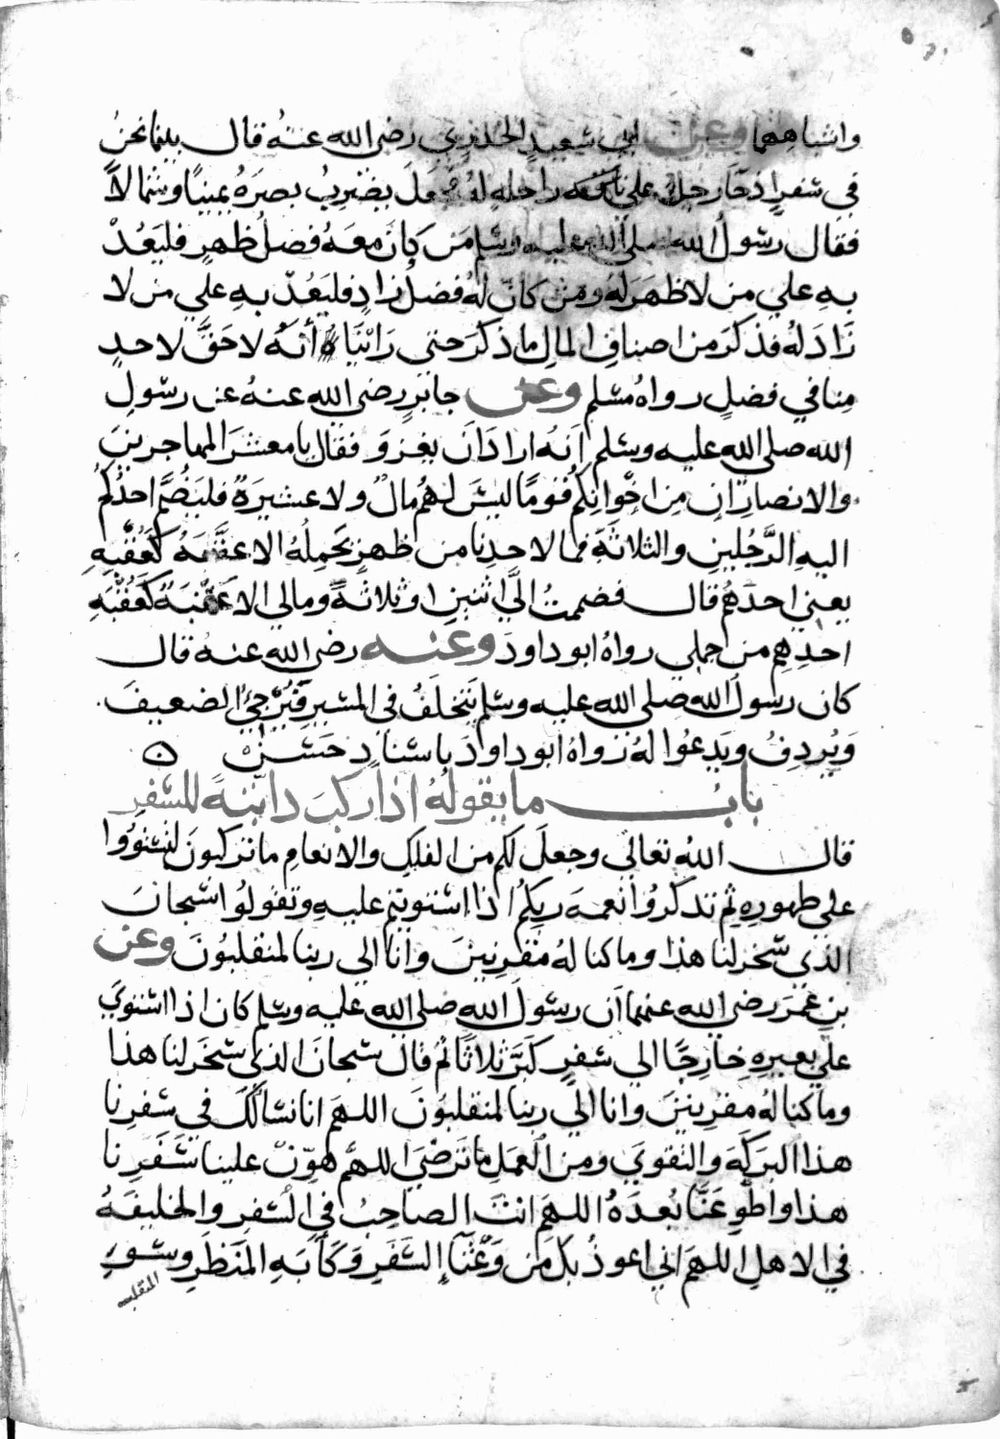 واشباههما وعن ابي سعيد الخدري رضي الله عنه قال بينما نحن
في سفر اذ جا رجل على راحلة له فجعل يضرب بصره يمينًا وشمالاً
فقال رسول الله صلى الله عليه وسلم من كان معه فضل ظهر فليعُدْ
به على من لا ظهر له ومن كان له فضل زاد فليعُدْ به على من لا
زاد له فذكر من اصناف المال ما ذكر حتى راينا أنه لا حقَّ لاحدٍ
منا في فضل رواه مسلم وعن جابر رضي الله عنه عن رسول
الله صلى الله عليه وسلم أنه اراد ان يغزو فقال يا معشر المهاجرين
والانصار ان من اخوانكم قوما ليس لهم مال ولا عشيرة فليضم احدكم
اليه الرجلين والثلاثة فما لاحدنا من ظهر يحمله الا عقبة كعقبه
يعني احدهم قال فضممت اليَّ اثنين او ثلاثة ومالي الا عقبة كعقبة
احدهم من جملي رواه ابو داود وعنه رضي الله عنه قال
كان رسول الله صلى الله عليه وسلم يتخلف في المسير فيزجي الضعيف
ويردف ويدعوا له رواه ابو داود باسناد حسن ه
باب ما يقوله اذا ركب دابّةً للسفر
قال الله تعالى وجعل لكم من الفلك والانعام ما تركبون لتستووا
على ظهوره ثم تذكروا نعمة ربكم اذا استويتم عليه وتقولوا سبحان
الذي سخر لنا هذا وما كنا له مقرنين وانا الى ربنا لمنقلبون وعن
بن عمر رضي الله عنهما ان رسول الله صلى الله عليه وسلم كان اذا استوى
على بعيره خارجًا الى سفر كبَّر ثلاثًا ثم قال سبحان الذي سخر لنا هذا
وما كنا له مقرنين وانا الى ربنا لمنقلبون اللهم انا نسالك في سفرنا
هذا البركة والتقوى ومن العمل ما ترضى اللهم هوّن علينا سفرنا
هذا واطوِ عنّا بُعده اللهم انت الصاحب في السفر والخليفة
في الاهل اللهم اني اعوذ بك من وعثآء السفر وكآبة المنظر وسوء
المنقلب